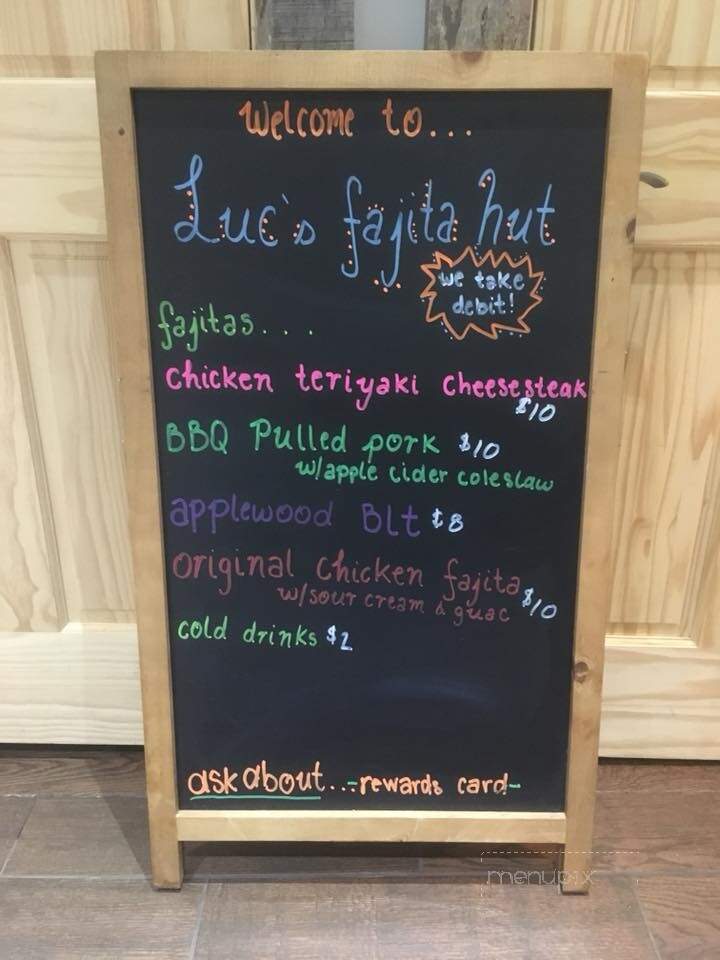 Welcome to...
Luc's fajita hut
we take
debit!
fajitas...
chicken teriyaki cheesesteak
$10
BBQ Pulled pork $10
w/apple cider coleslaw
applewood BLt $8
original chicken fajita
w/sour cream & guac $10
cold drinks $2
ask about...-rewards card-
menupix